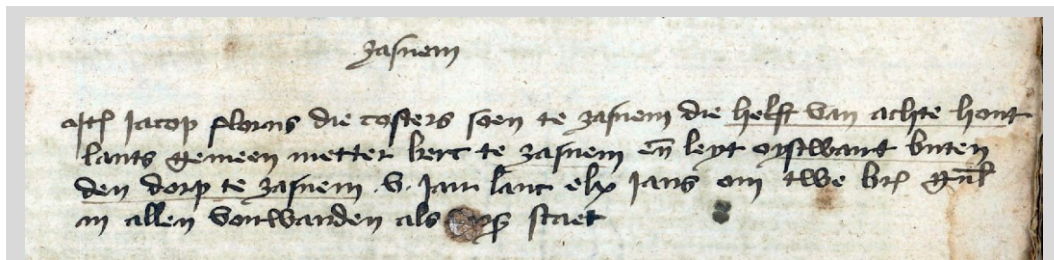 zasnem
Itē Jacop florens die costers soen te zasnem die helft van achte hont
lants gemeen metter kerc te zasnem eñ leyt oystwaert buten
den dorp te zasnem .v. jair lanc elx jairs om twe br̄
in allen vorwarden als staet